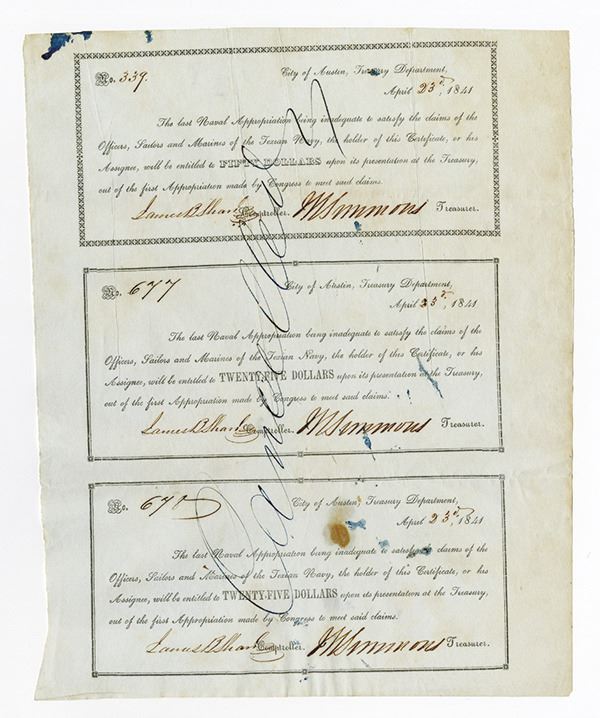 No. 339. City of Austin, Treasury Department,
April 23d, 1841
The last Naval Appropriation being inadequate to satisfy the claims of the
Officers, Sailors and Marines of the Texian Navy, the holder of this Certificate, or his
Assignee, will be entitled to FIFTY DOLLARS upon its presentation at the Treasury,
out of the first Appropriation made by Congress to meet said claims.
James B Shaw Comptroller. W Simmons Treasurer.
Cancelled
No. 677 City of Austin, Treasury Department,
April 23d, 1841
The last Naval Appropriation being inadequate to satisfy the claims of the
Officers, Sailors and Marines of the Texian Navy, the holder of this Certificate, or his
Assignee, will be entitled to TWENTY-FIVE DOLLARS upon its presentation at the Treasury,
out of the first Appropriation made by Congress to meet said claims.
James B Shaw Comptroller. W Simmons Treasurer.
No. 670 City of Austin, Treasury Department,
April 23d, 1841
The last Naval Appropriation being inadequate to satisfy the claims of the
Officers, Sailors and Marines of the Texian Navy, the holder of this Certificate, or his
Assignee, will be entitled to TWENTY-FIVE DOLLARS upon its presentation at the Treasury,
out of the first Appropriation made by Congress to meet said claims.
James B Shaw Comptroller. W Simmons Treasurer.